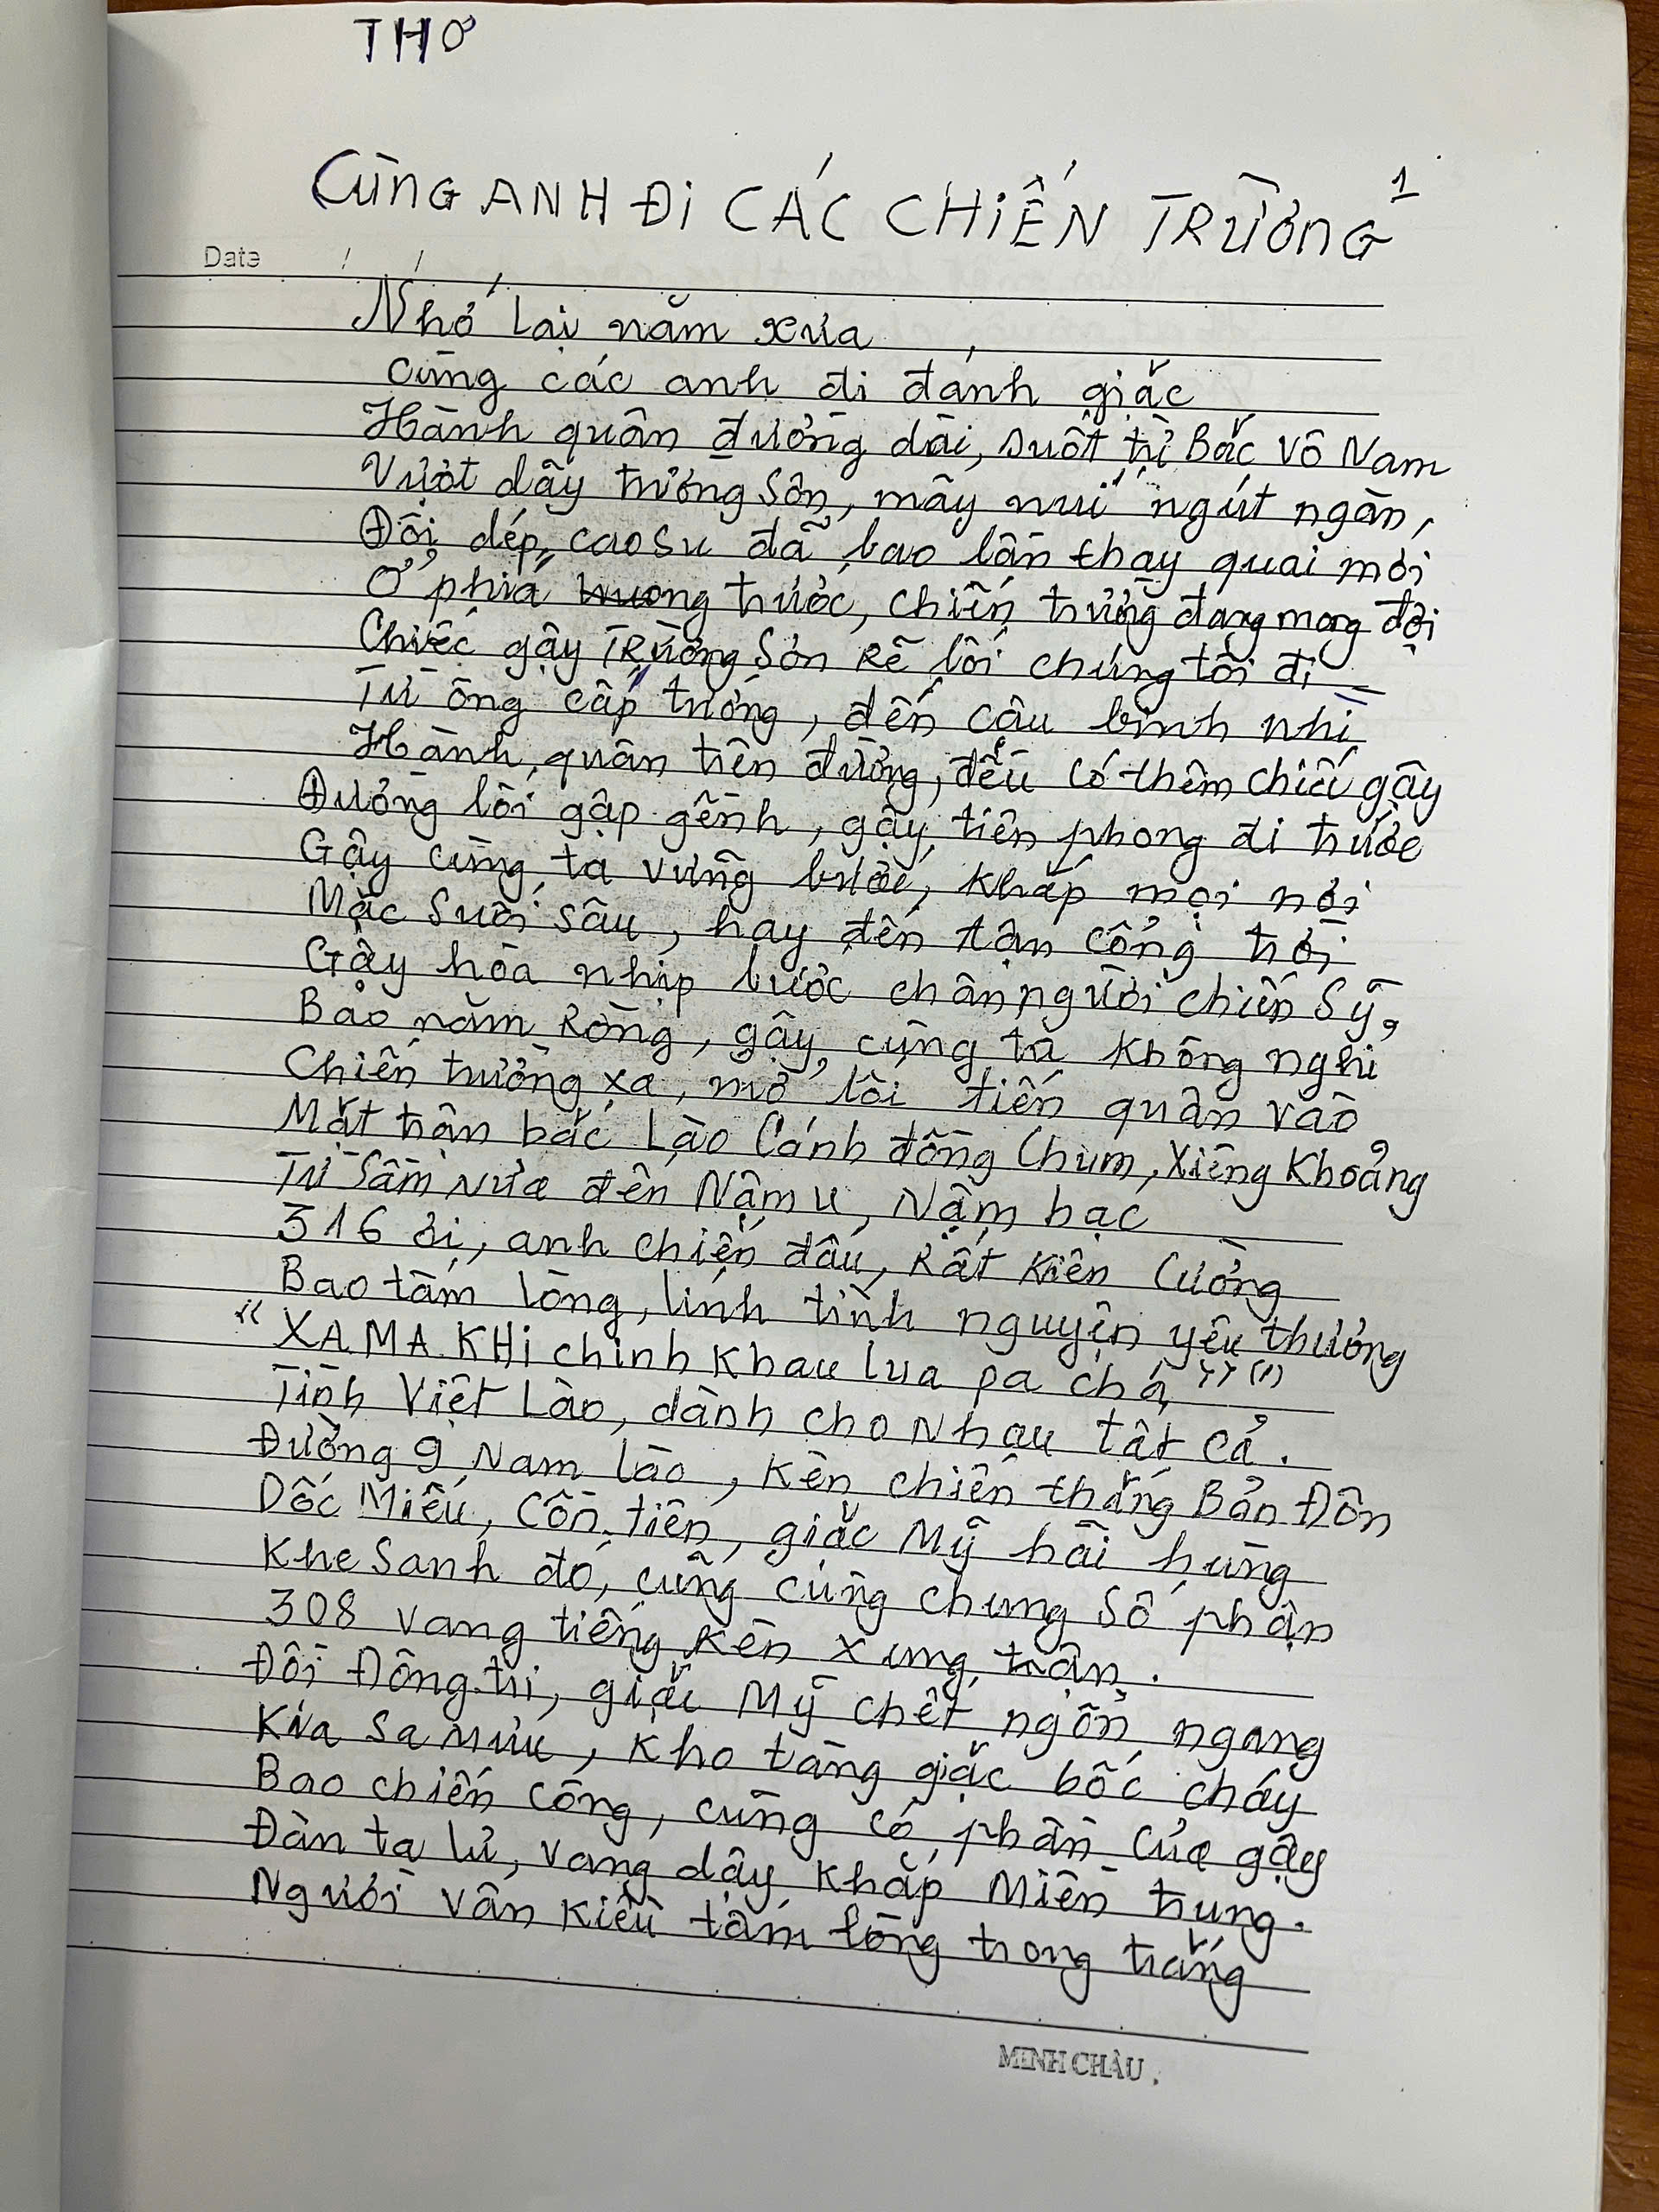 THƠ
CÙNG ANH ĐI CÁC CHIẾN TRƯỜNG 1
Date / /
Nhớ lại năm xưa
Cùng các anh đi đánh giặc
Hành quân đường dài, suốt từ Bắc vô Nam
Vượt dãy trường Sơn, mây núi ngút ngàn,
Đôi dép, cao su đã bao lần thay quai mới
Ở phía trước, chiến trường đang mong đợi
Chiếc gậy TRƯỜNG Sơn Rẽ lối chúng tôi đi
Từ ông cấp tướng, đến cậu binh nhì
Hành quân tiên đường, đều có thêm chiếc gậy
Đường lối gập gềnh, gậy tiên phong đi trước
Gậy cùng ta vững bước, khắp mọi nơi
Mặc suối sâu, hay đến tận cổng trời
Gậy hòa nhịp bước chân người chiến Sỹ,
Bao năm Ròng, gậy cùng ta không nghỉ
Chiến trường xa, mở lối tiến quân vào
Mặt trận bắc Lào Cánh đồng Chum, Xiêng Khoảng
Từ Sầm Nưa đến Nậm u, Nậm bạc
316 ơi, anh chiến đấu, Rất kiên Cường
Bao tấm lòng, lính tình nguyện yêu thương
"XA MA KHi chinh khau lua pa chá" (1)
Tình Việt Lào, dành cho Nhau tất cả.
Đường 9 Nam lào, kèn chiến thắng Bản Đôn
Dốc Miếu, Cồn tiên, giặc Mỹ hãi hùng
Khe Sanh đó, cũng cùng chung số phận
308 vang tiếng kèn xung trận.
Đồi Động tri, giặc Mỹ chết ngổn ngang
Kia Sa Mưu, kho tàng giặc bốc cháy
Bao chiến công, cũng có phần của gậy
Đàn ta lư, vang dậy khắp Miền trung.
Người Vân Kiều tấm lòng trong trắng
MINH CHÂU